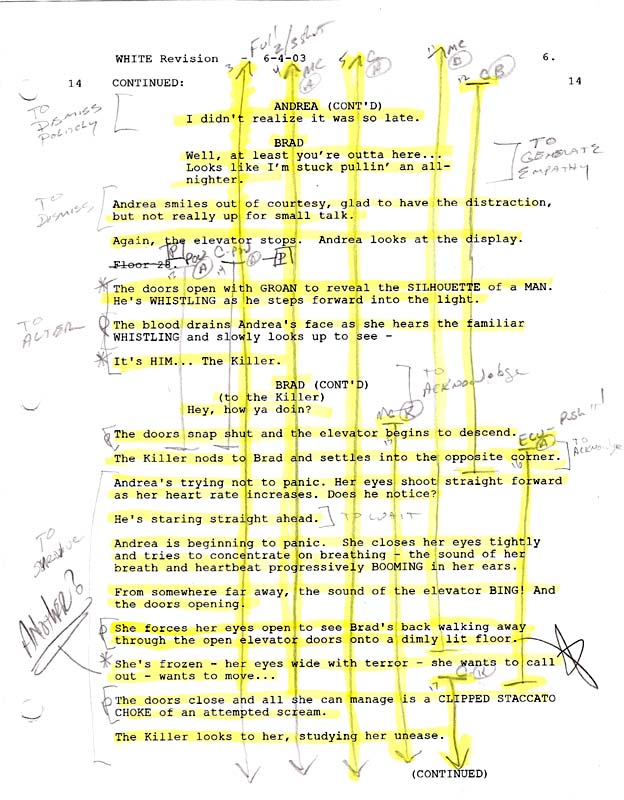 Full
2/3 shot
WHITE Revision - 6-4-03 6.
3 4 MC A 5 C A 11 MC B 12 CB
14 CONTINUED: 14
TO
DISMISS
POLITELY
ANDREA (CONT'D)
I didn't realize it was so late.
BRAD
Well, at least you're outta here...
Looks like I'm stuck pullin' an all-
nighter.
TO
GENERATE
EMPATHY
TO
DISMISS
Andrea smiles out of courtesy, glad to have the distraction,
but not really up for small talk.
Again, the elevator stops. Andrea looks at the display.
Floor 28.
P POV A P
The doors open with GROAN to reveal the SILHOUETTE of a MAN.
He's WHISTLING as he steps forward into the light.
TO
ALTER
The blood drains Andrea's face as she hears the familiar
WHISTLING and slowly looks up to see -
It's HIM... The Killer.
TO
ACKNOWLEDGE
BRAD (CONT'D)
(to the Killer)
Hey, how ya doin?
MC K
ECU - Push in
A
16
The doors snap shut and the elevator begins to descend.
TO
ACKNOWLEDGE
The Killer nods to Brad and settles into the opposite corner.
Andrea's trying not to panic. Her eyes shoot straight forward
as her heart rate increases. Does he notice?
He's staring straight ahead. TO WAIT
TO
SURVIVE
Andrea is beginning to panic. She closes her eyes tightly
and tries to concentrate on breathing - the sound of her
breath and heartbeat progressively BOOMING in her ears.
ANOTHER?
From somewhere far away, the sound of the elevator BING! And
the doors opening.
She forces her eyes open to see Brad's back walking away
through the open elevator doors onto a dimly lit floor.
She's frozen - her eyes wide with terror - she wants to call
out - wants to move...
17 C K
The doors close and all she can manage is a CLIPPED STACCATO
CHOKE of an attempted scream.
The Killer looks to her, studying her unease.
(CONTINUED)